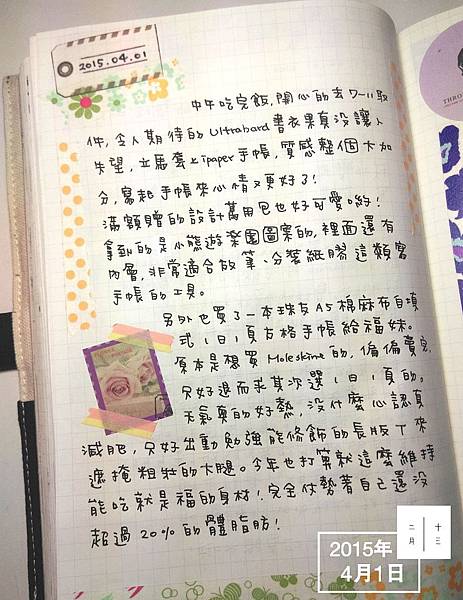 2015.04.01
中午吃完飯,開心的去7-11取
件,令人期待的Ultrahard書衣果真沒讓人
失望,立馬套上ipaper手帳,質感整個大加
分,寫起手帳來心情又更好了!
滿額贈的設計萬用包也好可愛喲!
拿到的是小熊遊樂園圖案的,裡面還有
內層,非常適合放筆、分裝紙膠這類寫
手帳的工具。
另外也買了一本珠友A5棉麻布自填
式1日1頁方格手帳給福妹。
原本是想買Moleskine的,偏偏賣完
只好退而求其次選1日1頁的。
天氣真的好熱,沒什麼心認真
減肥,只好出動勉強能修飾的長版T來
遮掩粗壯的大腿。今年也打算就這麼維持
能吃就是福的身材!完全仗勢著自己還沒
超過20%的體脂肪!
THRO
二月
十三
2015年
4月1日